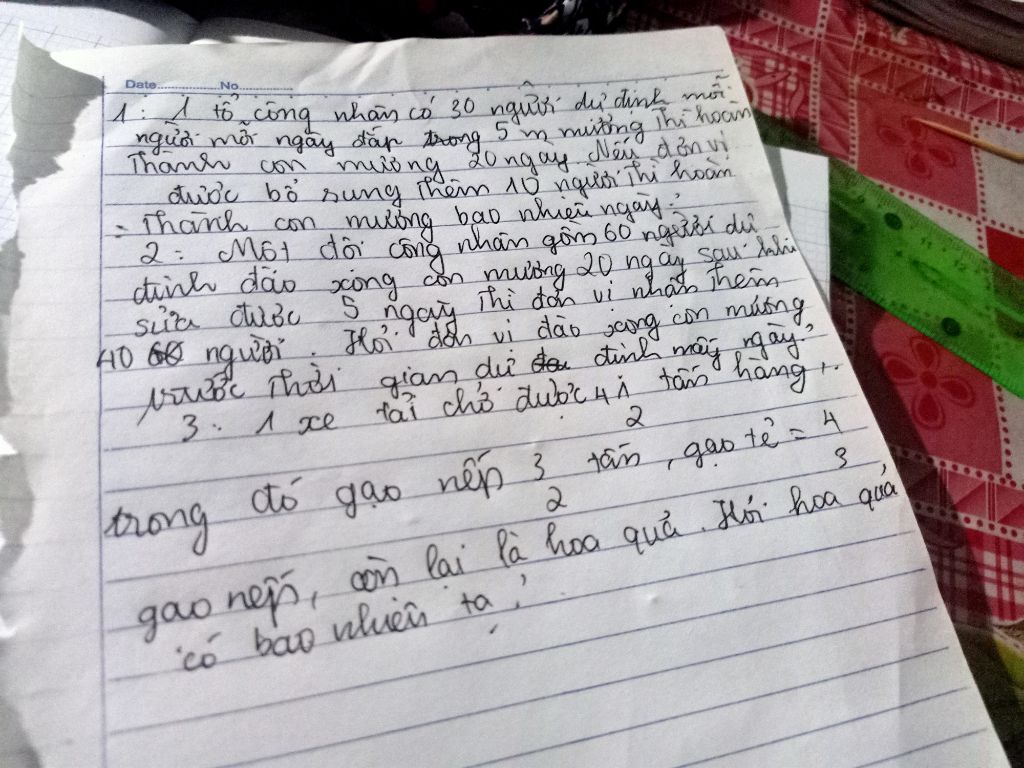 Date............No............
1: 1 tổ công nhân có 30 người dự định mỗi
người mỗi ngày đắp trong 5 m mương thì hoàn
thành con mương 20 ngày. Nếu đơn vị
được bổ sung thêm 10 người thì hoàn
thành con mương bao nhiêu ngày?
2: Một đội công nhân gồm 60 người dự
định đào xong con mương 20 ngày sau khi
sửa được 5 ngày thì đơn vị nhận thêm
40 người. Hỏi đơn vị đào xong con mương
trước thời gian dự định mấy ngày?
3: 1 xe tải chở được 4 1/2 tấn hàng,
trong đó gạo nếp 3/2 tấn, gạo tẻ = 4/3
gạo nếp, còn lại là hoa quả. Hỏi hoa quả
có bao nhiêu tạ?